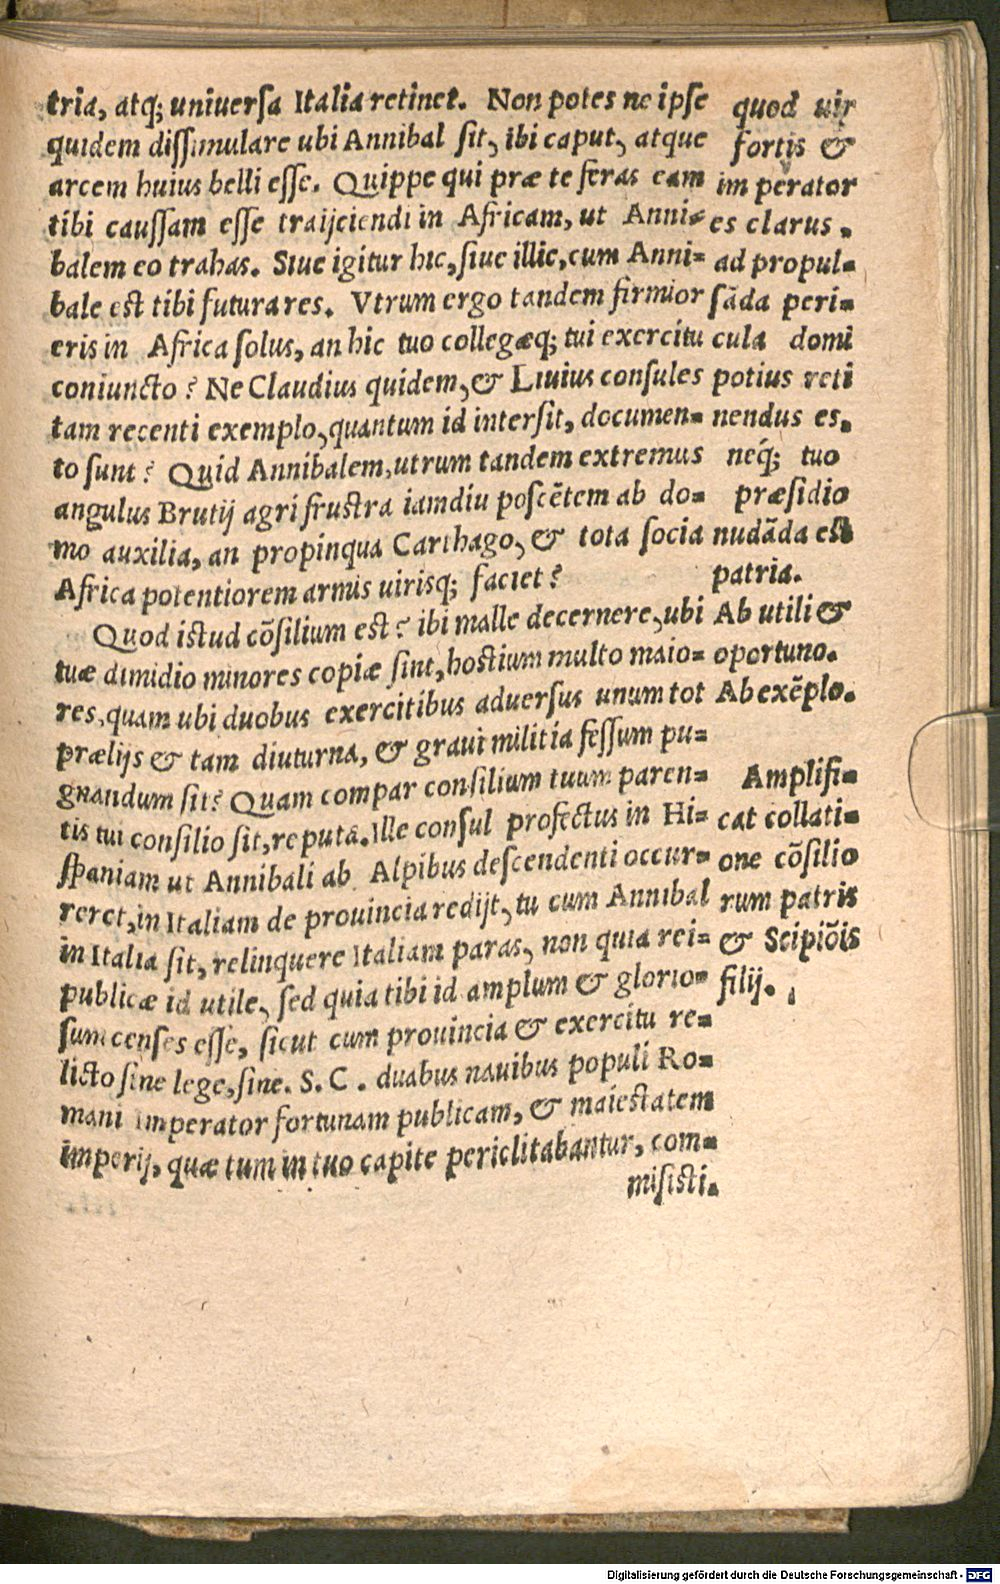 tria, atq; uniuersa Italia retinet. Non potes ne ipse
quidem dissimulare ubi Annibal sit, ibi caput, atque
arcem huius belli esse. Quippe qui præ te feras eam
tibi caussam esse traijciendi in Africam, ut Anni-
balem eo trahas. Siue igitur hic, siue illic, cum Anni-
bale est tibi futura res. Vtrum ergo tandem firmior
eris in Africa solus, an hic tuo collegæq; tui exercitu
coniuncto? Ne Claudius quidem, & Liuius consules
tam recenti exemplo, quantum id intersit, documen-
to sunt? Quid Annibalem, utrum tandem extremus
angulus Brutij agri frustra iamdiu poscẽtem ab do-
mo auxilia, an propinqua Carthago, & tota socia
Africa potentiorem armis uirisq; faciet?
Quod istud cõsilium est? ibi malle decernere, ubi
tuæ dimidio minores copiæ sint, hostium multo maio-
res, quam ubi duobus exercitibus aduersus unum tot
prælijs & tam diuturna, & graui militia fessum pu-
gnandum sit? Quam compar consilium tuum paren-
tis tui consilio sit, reputa. Ille consul profectus in Hi-
spaniam ut Annibali ab Alpibus descendenti occur-
reret, in Italiam de prouincia redijt, tu cum Annibal
in Italia sit, relinquere Italiam paras, non quia rei-
publicæ id utile, sed quia tibi id amplum & glorio-
sum censes esse, sicut cum prouincia & exercitu re-
licto sine lege, sine. S. C. duabus nauibus populi Ro-
mani imperator fortunam publicam, & maiestatem
imperij, quæ tum in tuo capite periclitabantur, com-
misisti.
quod uir
fortis &
imperator
es clarus.
ad propul-
sãda peri-
cula domi
potius reti
nendus es.
néq; tuo
præsidio
nudãda est
patria.
Ab utili &
oportuno.
Ab exẽplo.
Amplifi-
cat collati-
one cõsilio
rum patris
& Scipiõis
filij.
Digitalisierung gefördert durch die Deutsche Forschungsgemeinschaft - DFG